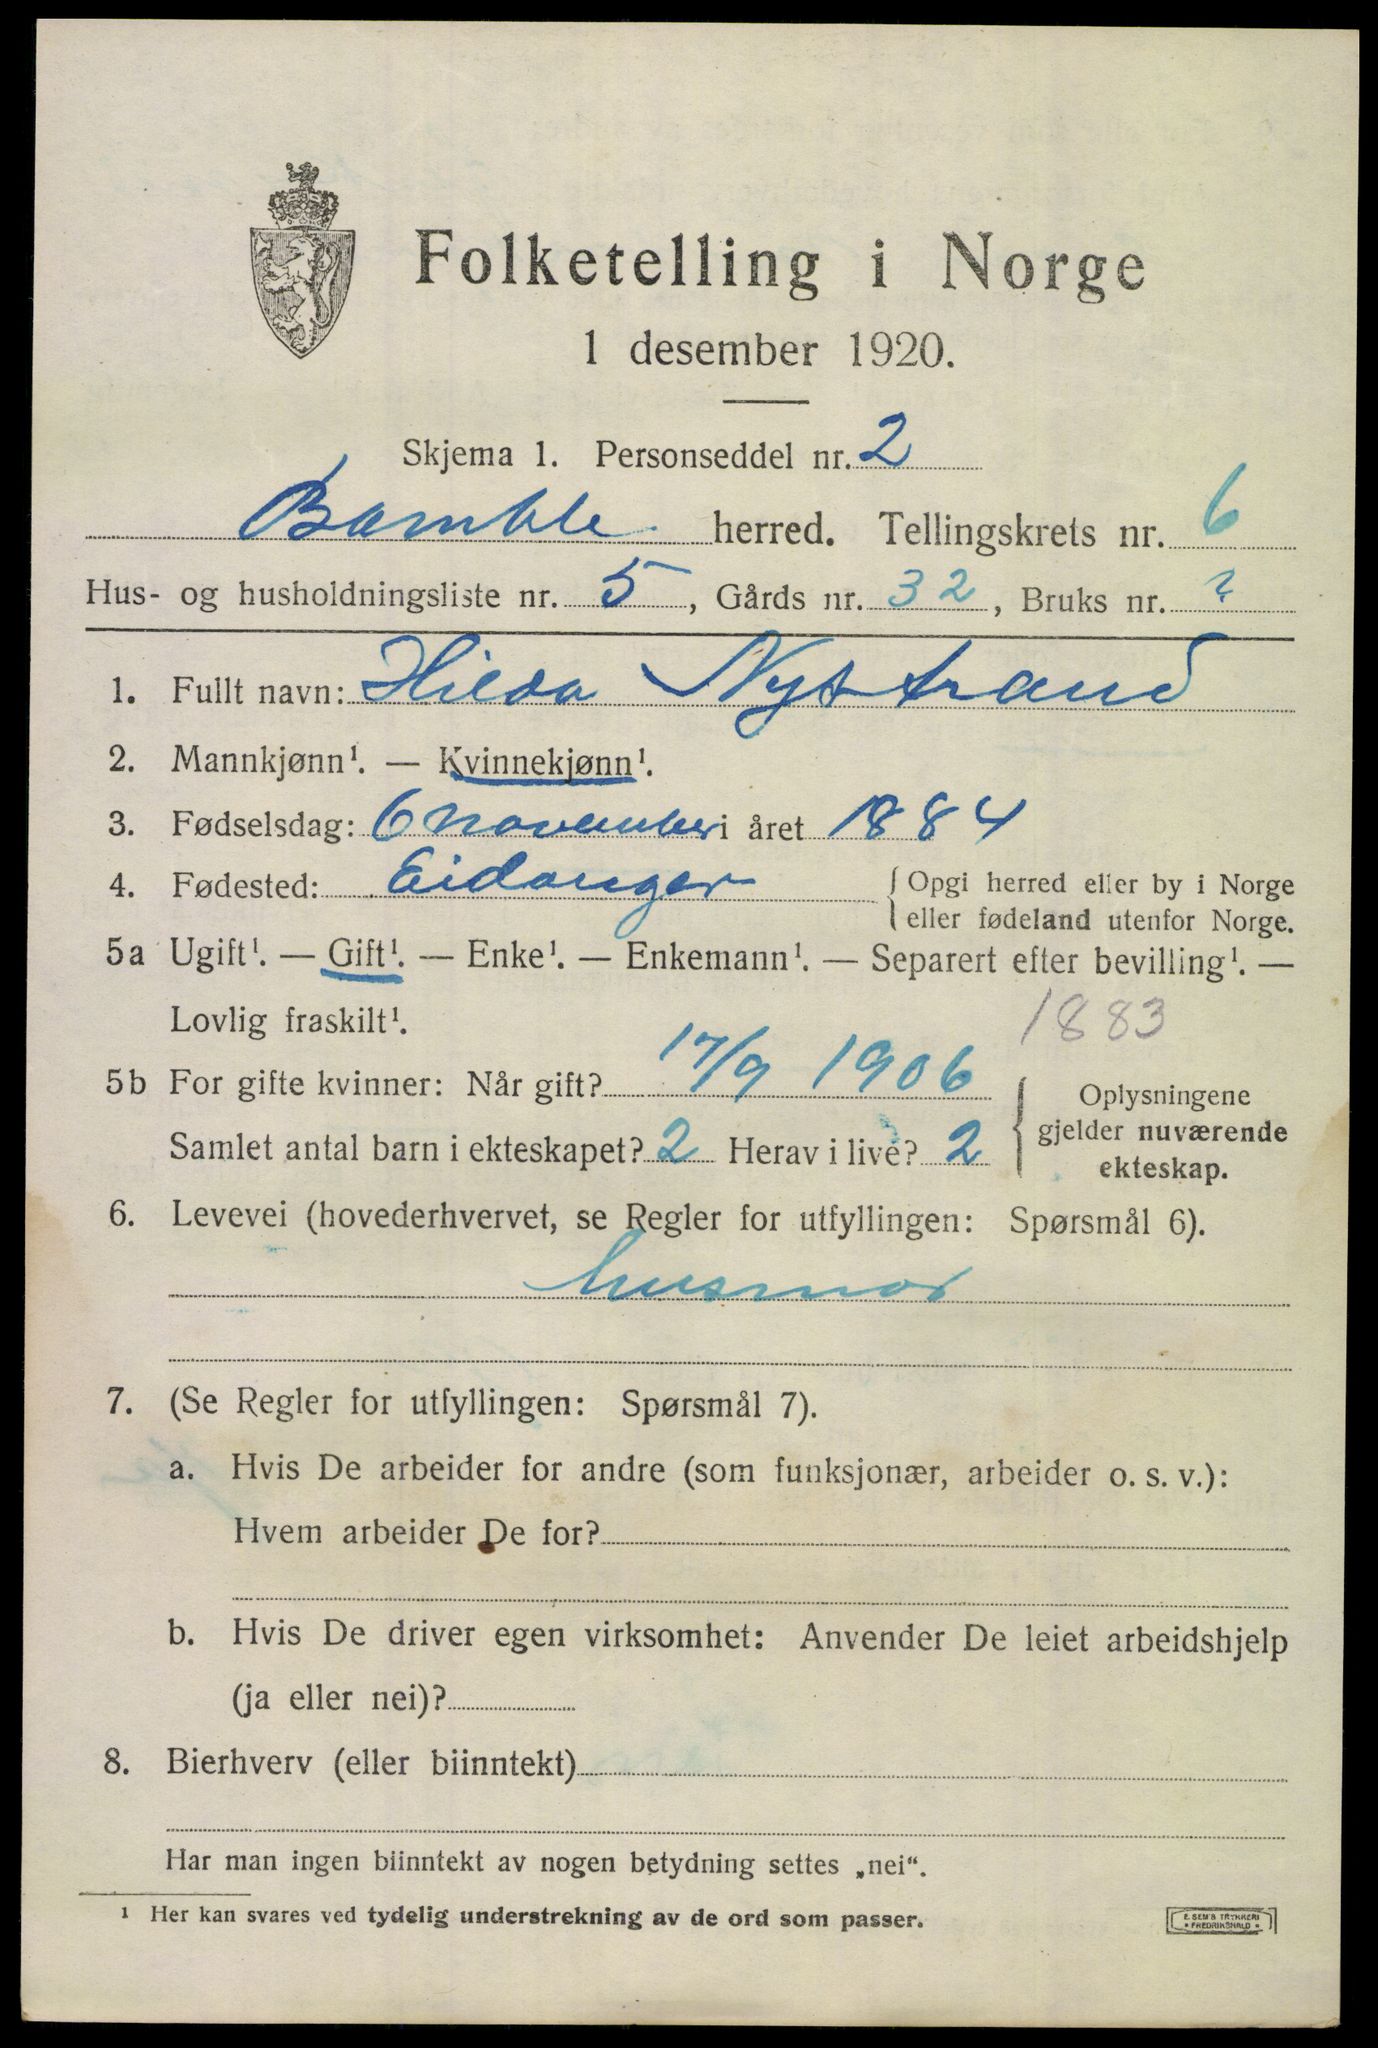 Folketelling i Norge
1 desember 1920.
Skjema 1. Personseddel nr. 2
Bamble herred. Tellingskrets nr. 6
Hus- og husholdningsliste nr. 5, Gårds nr. 32, Bruks nr. ?
1. Fullt navn: Hilda Nystrand
2. Mannkjønn¹. — Kvinnekjønn¹.
3. Fødselsdag: 6 november i året 1884
4. Fødested: Eidanger { Opgi herred eller by i Norge
eller fødeland utenfor Norge.
5a Ugift¹. — Gift¹. — Enke¹. — Enkemann¹. — Separert efter bevilling¹. —
Lovlig fraskilt¹. 1883
5b For gifte kvinner: Når gift? 17/9 1906 { Oplysningene
gjelder nuværende
ekteskap.
Samlet antal barn i ekteskapet? 2 Herav i live? 2
6. Levevei (hovederhvervet, se Regler for utfyllingen: Spørsmål 6).
husmor
7. (Se Regler for utfyllingen: Spørsmål 7).
a. Hvis De arbeider for andre (som funksjonær, arbeider o. s. v.):
Hvem arbeider De for?
b. Hvis De driver egen virksomhet: Anvender De leiet arbeidshjelp
(ja eller nei)?
8. Bierhverv (eller biinntekt)
Har man ingen biinntekt av nogen betydning settes „nei“.
¹ Her kan svares ved tydelig understrekning av de ord som passer.
E. SEM'S TRYKKERI
* FREDRIKSHALD *